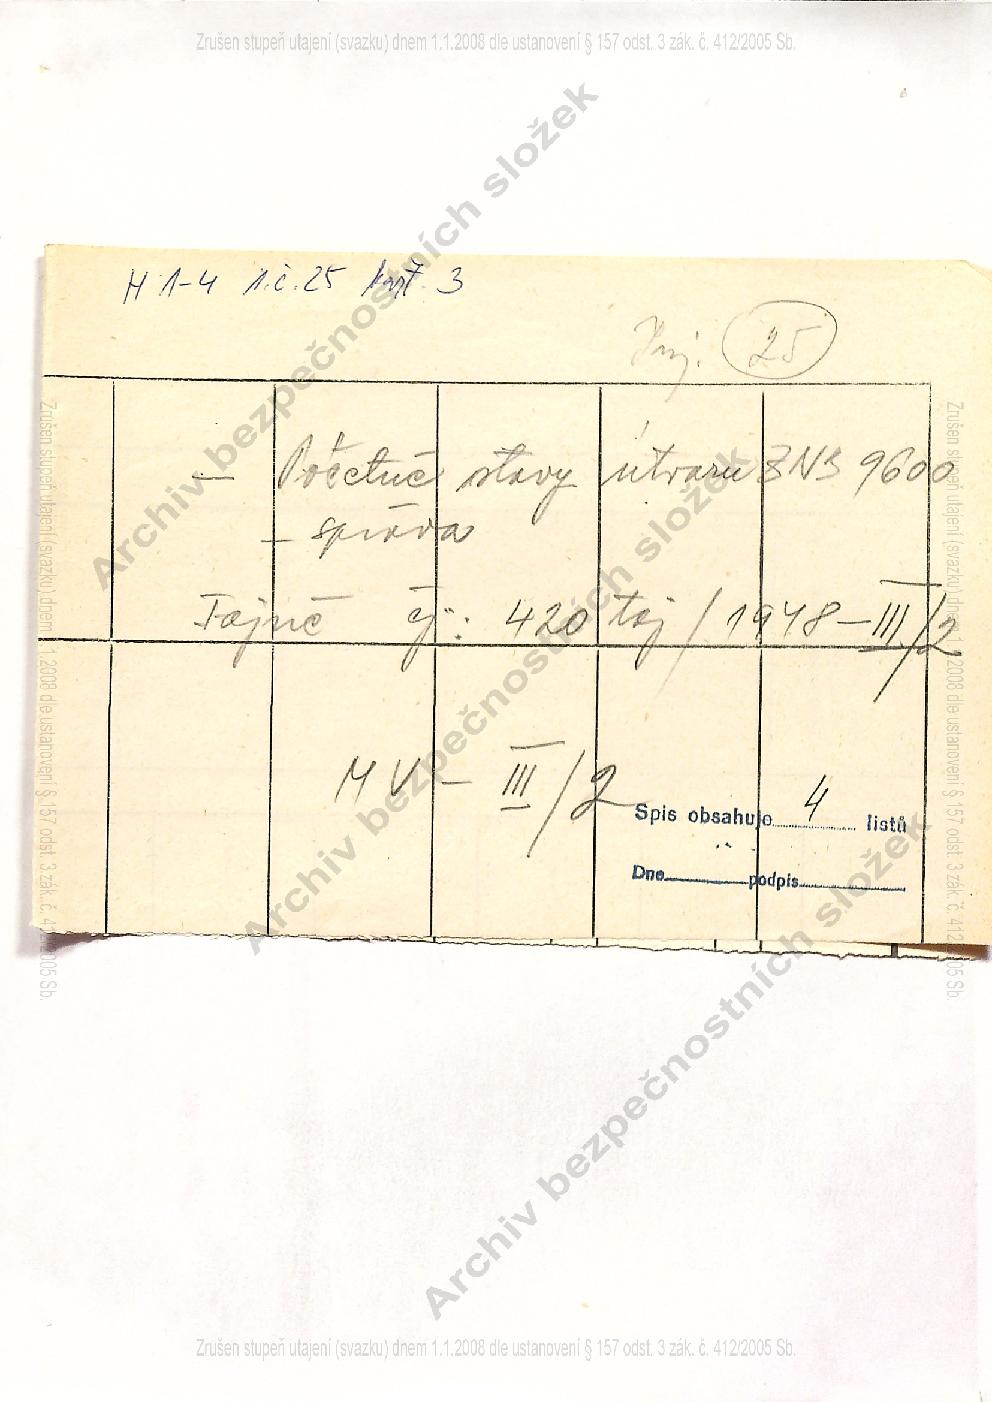 Zrušen stupeň utajení (svazku) dnem 1.1.2008 dle ustanovení § 157 odst. 3 zák. č. 412/2005 Sb.
H 1-4 i.č.25 kart. 3
25
— Početné stavy útvaru SNB 9600
— správa
Tajné čj: 420 taj / 1948 – III/2
MV – III/2
Spis obsahuje 4 listů
Dne podpis
Archiv bezpečnostních složek
Archiv bezpečnostních složek
Archiv bezpečnostních složek
Zrušen stupeň utajení (svazku) dnem 1.1.2008 dle ustanovení § 157 odst. 3 zák. č. 412/2005 Sb.
Zrušen stupeň utajení (svazku) dnem 1.1.2008 dle ustanovení § 157 odst. 3 zák. č. 412/2005 Sb.
Zrušen stupeň utajení (svazku) dnem 1.1.2008 dle ustanovení § 157 odst. 3 zák. č. 412/2005 Sb.